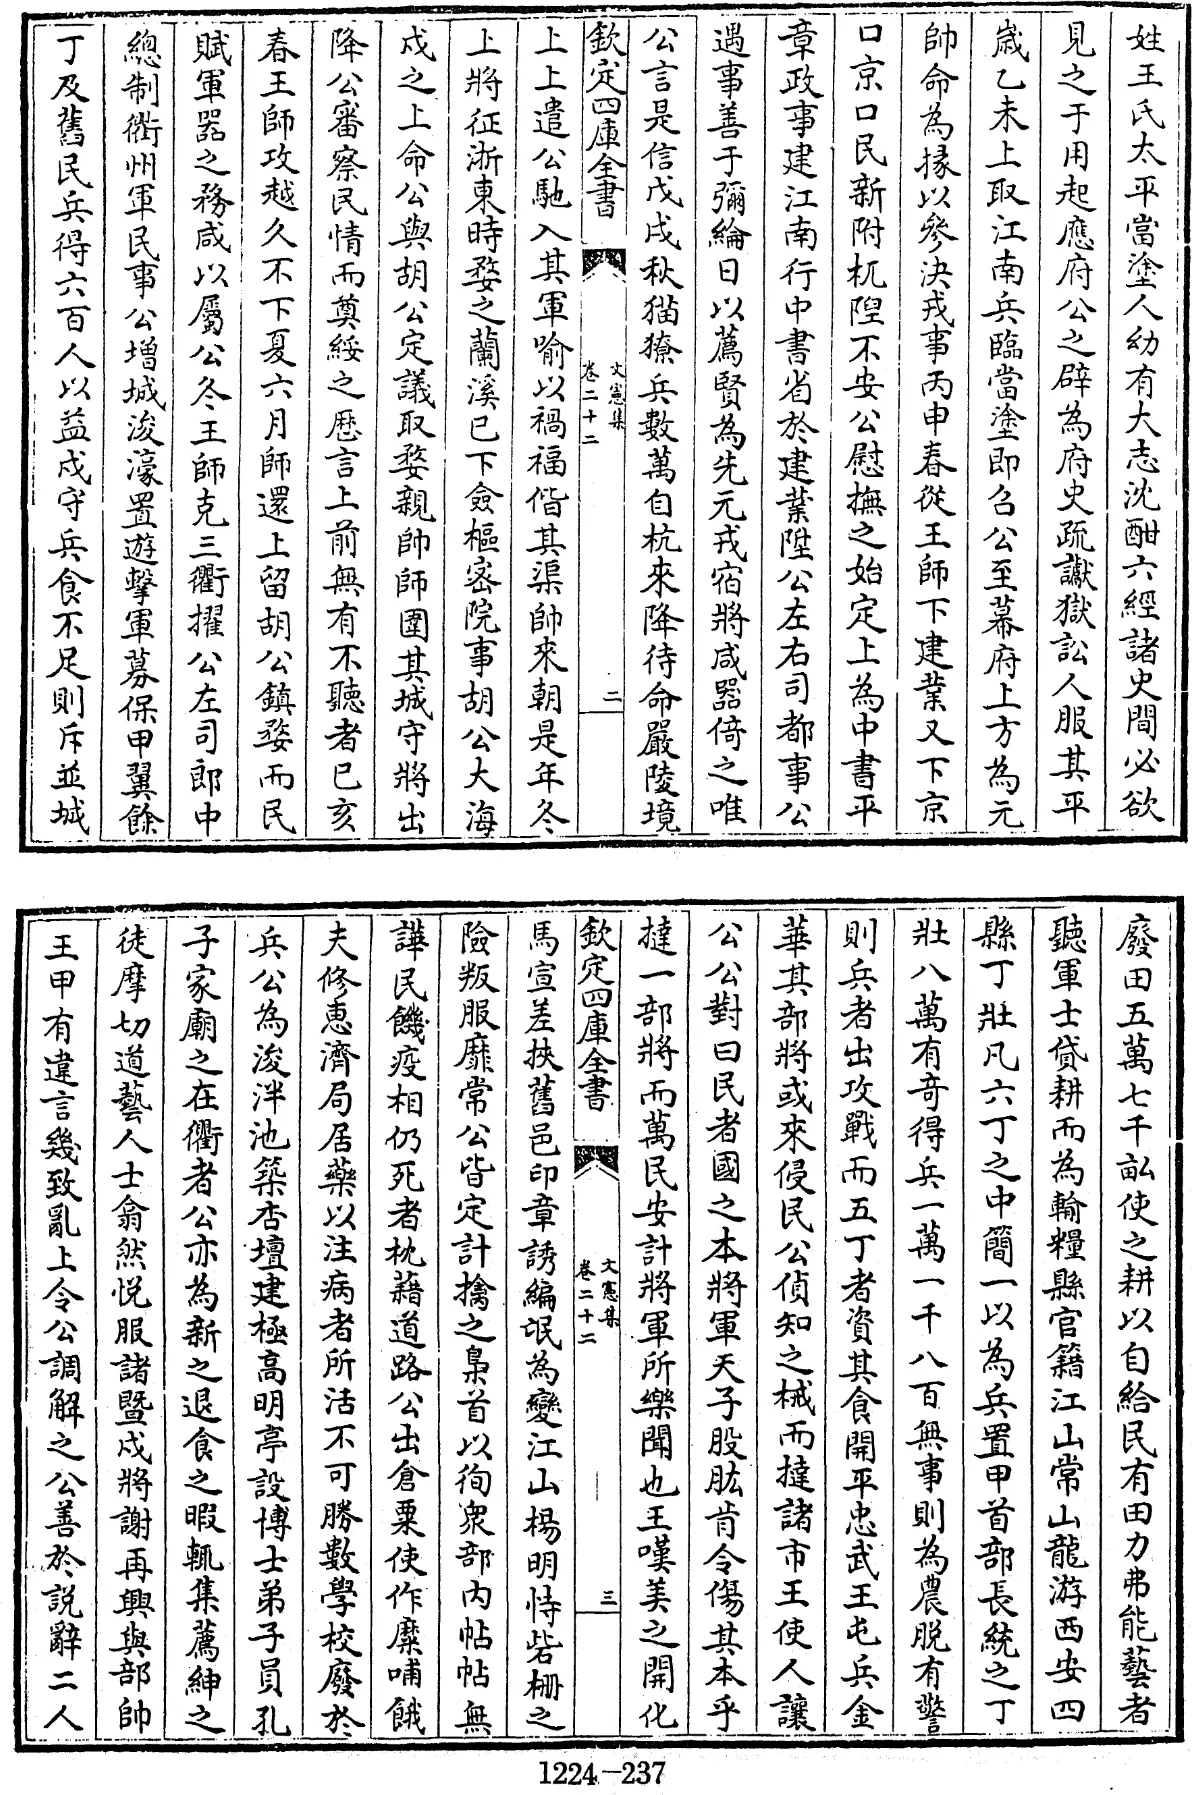 姓王氏太平當塗人幼有大志沈酣六經諸史間必欲
見之于用起應府公之辟為府史疏讞獄訟人服其平
歲乙未上取江南兵臨當塗即召公至幕府上方為元
帥命為掾以參決戎事丙申春從王師下建業又下京
口京口民新附杌隉不安公慰撫之始定上為中書平
章政事建江南行中書省於建業陞公左右司都事公
遇事善于彌綸日以薦賢為先元戎宿將咸器倚之唯
公言是信戊戌秋猫獠兵數萬自杭來降待命嚴陵境
欽定四庫全書
文憲集
卷二十二
二
上上遣公馳入其軍喻以禍福偕其渠帥來朝是年冬
上將征浙東時婺之蘭溪已下僉樞密院事胡公大海
戍之上命公與胡公定議取婺親帥師圍其城守將出
降公審察民情而奠綏之歷言上前無有不聽者已亥
春王師攻越久不下夏六月師還上留胡公鎮婺而民
賦軍器之務咸以屬公冬王師克三衢擢公左司郎中
總制衢州軍民事公增城浚濠置遊擊軍募保甲翼餘
丁及舊民兵得六百人以益戍守兵食不足則斥並城
廢田五萬七千畝使之耕以自給民有田力弗能藝者
聽軍士貸耕而為輸糧縣官籍江山常山龍游西安四
縣丁壯凡六丁之中簡一以為兵置甲首部長統之丁
壯八萬有奇得兵一萬一千八百無事則為農脫有警
則兵者出攻戰而五丁者資其食開平忠武王屯兵金
華其部將或來侵民公偵知之械而撻諸市王使人讓
公公對曰民者國之本將軍天子股肱肯令傷其本乎
撻一部將而萬民安計將軍所樂聞也王嘆美之開化
欽定四庫全書
文憲集
卷二十二
三
馬宣差挾舊邑印章誘編氓為變江山楊明恃砦柵之
險叛服靡常公皆定計擒之梟首以徇衆部內帖帖無
譁民饑疫相仍死者枕藉道路公出倉粟使作糜哺餓
夫修惠濟局居藥以注病者所活不可勝數學校廢於
兵公為浚泮池築杏壇建極高明亭設博士弟子員孔
子家廟之在衢者公亦為新之退食之暇輒集薦紳之
徒摩切道藝人士翕然悦服諸暨戍將謝再興與部帥
王甲有違言幾致亂上令公調解之公善於説辭二人
1224—237